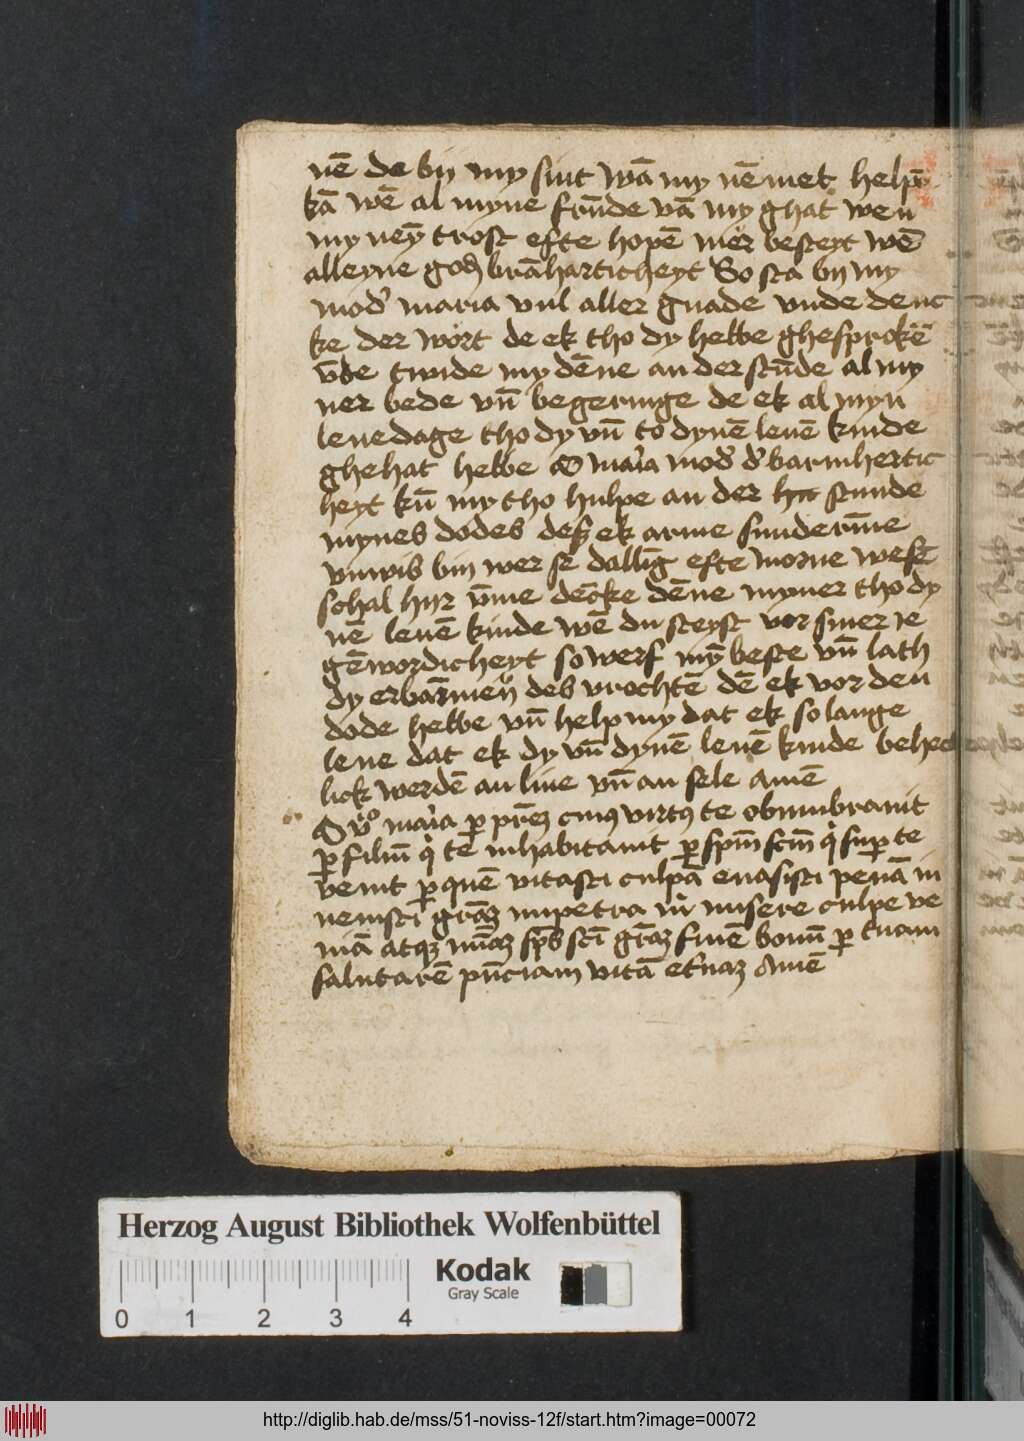 nē de bij my sint wā my nēmet helpē
kā wē al myne frūde vā my ghat wen
my neȳ trost efte hopē mer besteyt wē
alleyne god brāharticheyt So sta bij my
mod' maria vul aller gnade vnde denc
ke der wort de ek tho dy hebbe ghesprokē
vn̄de twide my dēne an der stūde al my
ner bede vn̄ begeringe de ek al myn
leuedage tho dy vn̄ to dynē leuē kinde
ghehat hebbe O maīa mod' d' barmhertic
heyt kū my tho hulpe an der stunde
mynes dodes des ek arme sunderīne
vnwis bin wer se dallīg efte morne wesē
schal hijr vm̄e dēcke dēne myner tho dy
nē leuē kinde wē du steyst vor siner ie
gēwordicheyt so werf mȳ beste vn̄ lath
dy erbarmen des vrochtē dē ek vor den
dode hebbe vn̄ help my dat ek so lange
leue dat ek dy vn̄ dynē leuē kinde behech
lick werdē an liue vn̄ an sele amē
O v̊o maīa p prēȝ cuiꝰ virtꝰ te obumbrauit
p filiū q te inhabitauit p spm̄ scm̄ q sup te
venit p quē vitasti culpā euasisti penā in
uenisti grāȝ impetra m misere culpe ve
niā atqȝ mūȝ spūs scī grāȝ finē bonū p tuam
salutarē pn̄ciam vitā et̄naȝ Amē
Herzog August Bibliothek Wolfenbüttel
Kodak
Gray Scale
0 1 2 3 4
http://diglib.hab.de/mss/51-noviss-12f/start.htm?image=00072